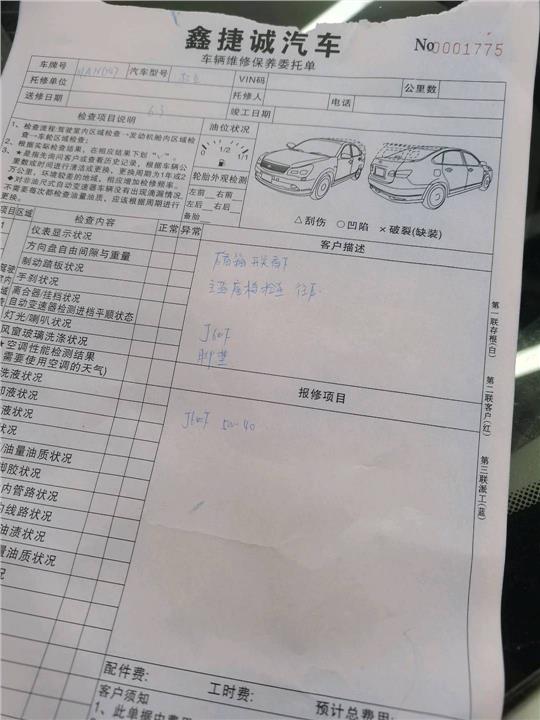 鑫捷诚汽车
车辆维修保养委托单
No 0001775
车牌号 汽车型号 VIN码 公里数
托修单位 托修人 电话
送修日期 6.3 竣工日期
检查项目说明
1、检查流程:驾驶室内区域检查→发动机舱内区域检查→车轮区域检查;
2、根据实际检查结果,在相应结果下划“√”。
3、★是指先询问客户或查看历史记录,根据车辆公里数或时间进行清洁或更换,更换周期为1年或2万公里,环境较差的地域,相应增加检修频率。
◆对非油尺式自动变速器车辆没有出现滴漏情况,不需要每次都检查油量油质,应该根据周期进行更换。
油位状况
1/2
1/1
轮胎外观检测
左前 右前
左后 右后
备胎
△刮伤 ○凹陷 ×破裂(缺装)
项目区域 检查内容 正常 异常
仪表显示状况
方向盘自由间隙与重量
制动踏板状况
手刹状况
离合器/挂档状况
自动变速器检测进档平顺状态
灯光/喇叭状况
风窗玻璃洗涤状况
★空调性能检测结果
需要使用空调的天气)
洗液状况
却液状况
液状况
/油量油质状况
脚胶状况
内管路状况
线路状况
油渍状况
量油质状况
况
客户描述
脚垫
报修项目
50-40
第一联存根(白)
第二联客户(红)
第三联派工(蓝)
配件费: 工时费: 预计总费用:
客户须知
1、此单据由费用